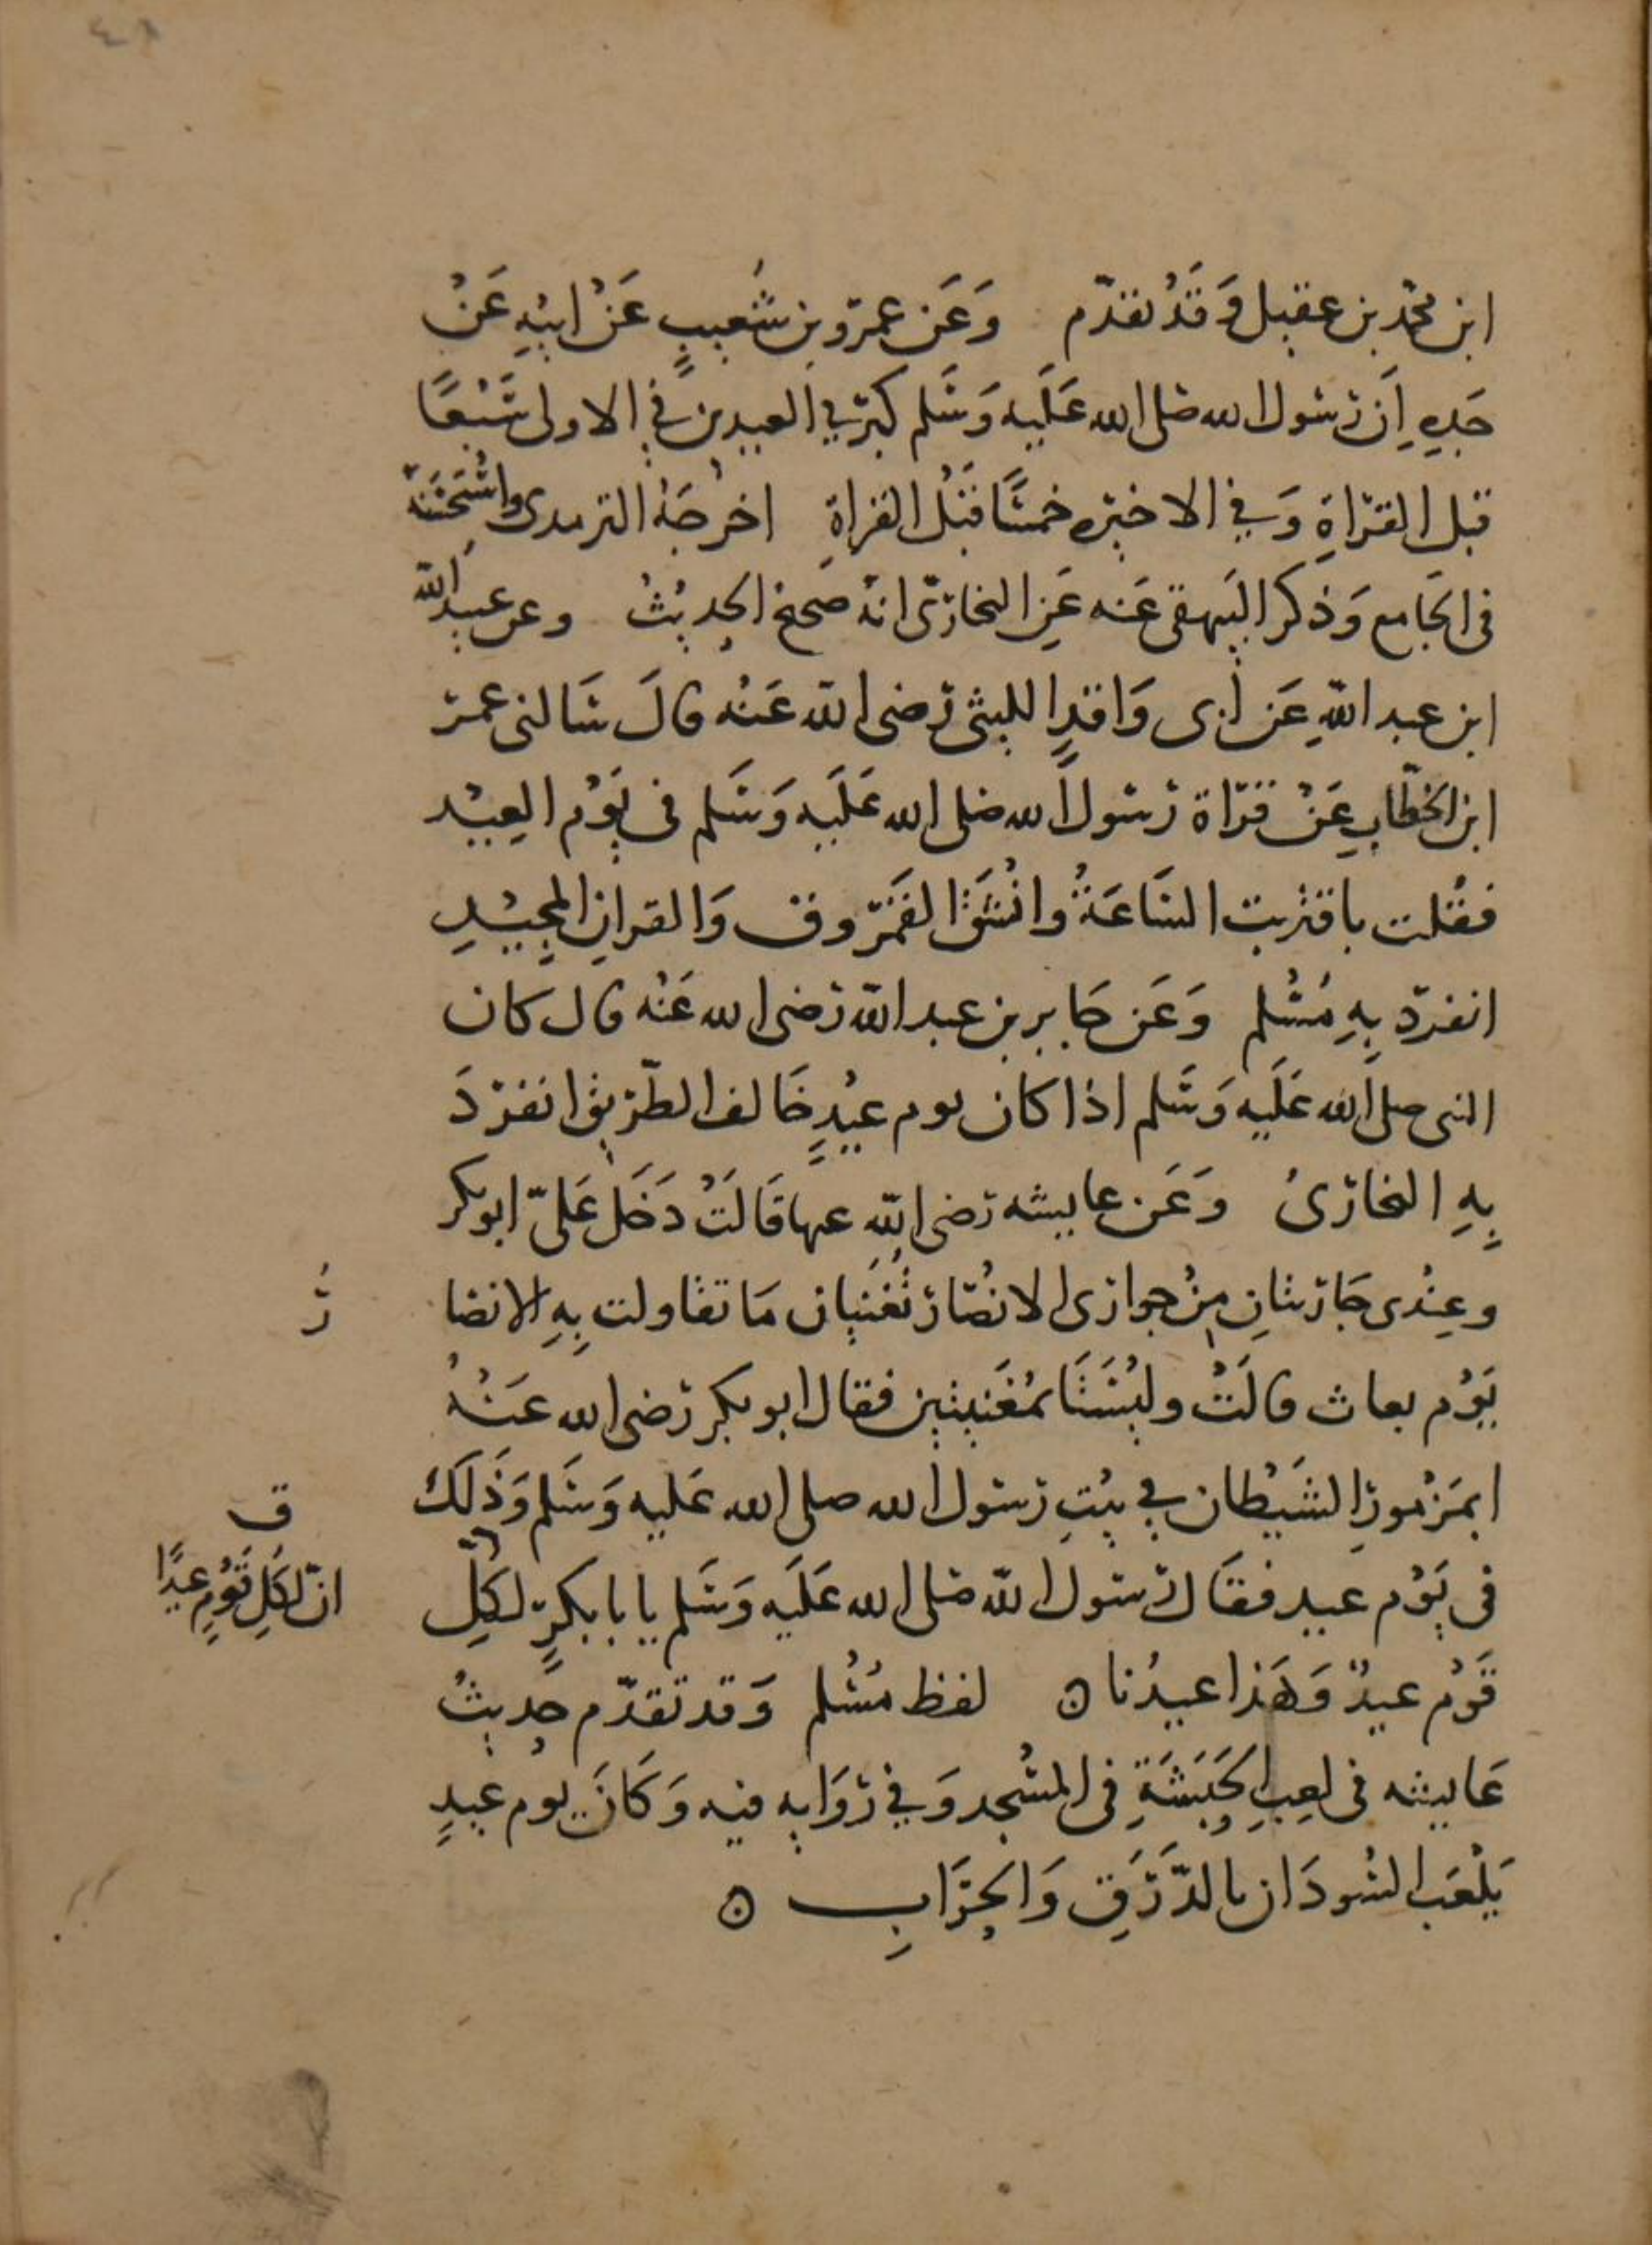 ابن محمد بن عقيل وَقَدْ تقدّم وَعَن عمرو بن شُعيبٍ عَنْ ابيْهِ عَنْ
جَدِهِ اِنَ رَسُول الله صَلى الله عَلَيه وَسَلم كبّر في العيدين في الاولى سَبْعًا
قبل القرَاةِ وَفي الاخيرِه خمسًا قبْل القراةِ اخرجَهُ الترمدى واسْتَحْسَنَهُ
فى الجَامع وَذكر البَيهقى عَنه عَنِ البخارِىّ انهُ صَحيح الحديْثُ وعن عبيد الله
ابن عبد اللهِ عَن ابى وَاقدٍ الليثى رَضى الله عَنْه قالَ سَالنى عمر
ابن الخطّابِ عَنْ قرَاة رَسُول الله صَلى الله عَلَيه وَسَلم فى يَوْم العِيْد
فقُلت باقترْبت السَّاعَةُ وانْشَقَّ القَمَر وق وَالقرانِ المجيْدِ
انفرَد بِهِ مُسْلم وَعَن جَابر بن عبد الله رَضى الله عَنْه قال كان
النبى صلى الله عَلَيه وَسَلم اذا كان يوم عيْدٍ خَالف الطّريق انفرَدَ
بِهِ البخارىُ وَعَن عايشه رَضى الله عنها قَالَتْ دَخَل عَلىّ ابو بكر
وعِنْدى جَارَيتَانِ مِنْ جوارَى الانْصَار تُغَنيان مَا تقَاولت بِهِ الانصا
رُ
يَوْم بعاث قالَتْ وليْسَتَا بمُغَنيتين فقال ابو بكر رَضى الله عَنْهُ
ابمَزْمورِ الشَيْطان في بيْتِ رَسُول الله صلى الله عَليه وَسَلم وَذَلَكَ
فى يَوْم عيد فقَال رَسُول الله صَلى الله عَلَيه وَسَلم يا بابكرٍ لكلِ
ق
انّ لكَلِ قَوْمٍ عيدًا
قَوْم عيدٌ وَهَذا عيدُنا ه لفظ مُسْلم وَقد تقدّم حَديثُ
عَايشه فى لعِبِ الحَبَشَةِ فى المسْجد وَفي رَوَايه فيه وَكَانَ يوم عيدٍ
يَلْعَب السُودَان بالدَّرَقِ وَالحِرَابِ ه